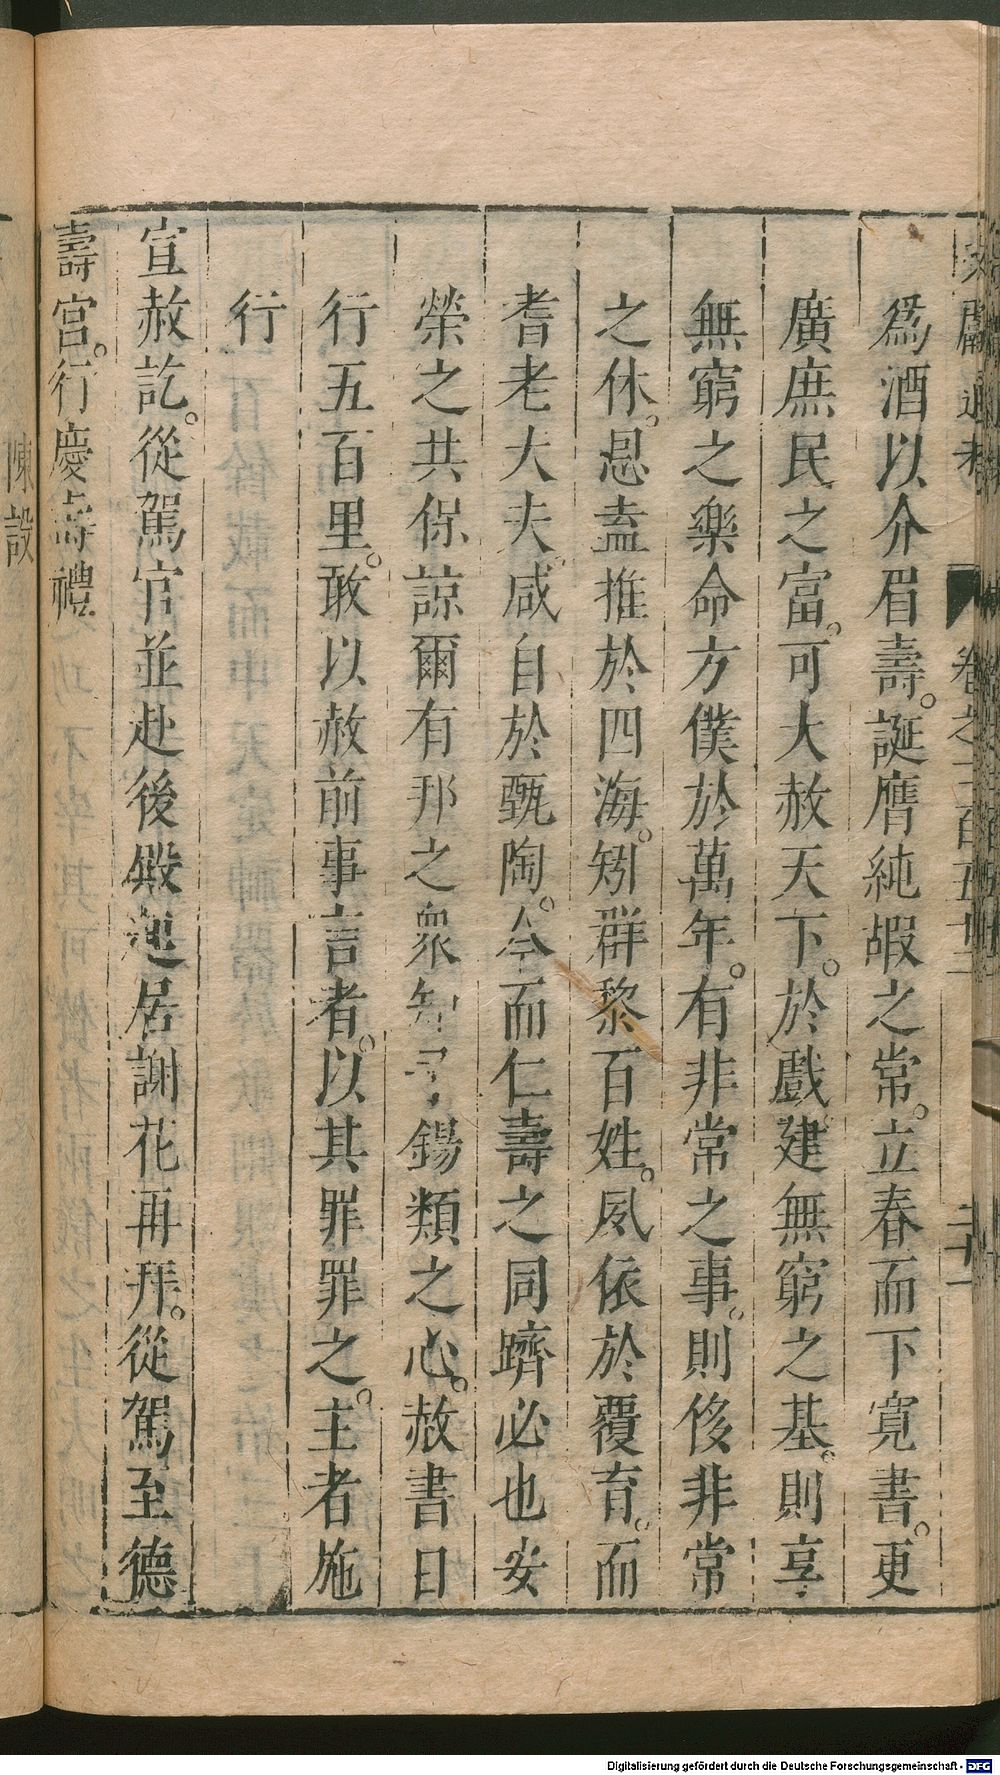 文獻通考 卷之二百五十二 二十一
爲酒以介眉壽。誕膺純嘏之常。立春而下寬書。更
廣庶民之富。可大赦天下。於戲建無窮之基。則享
無窮之樂命方僕於萬年。有非常之事。則侈非常
之休。恩盍推於四海。矧群黎百姓。夙依於覆育。而
耆老大夫。咸自於甄陶。今而仁壽之同躋必也安
榮之共保諒爾有邦之衆知 錫類之心。赦書日
行五百里。敢以赦前事言者。以其罪罪之。主者施
行
宣赦訖。從駕官並赴後殿起居謝花再拜。從駕至德
壽宮。行慶壽禮
陳設
Digitalisierung gefördert durch die Deutsche Forschungsgemeinschaft - DFG